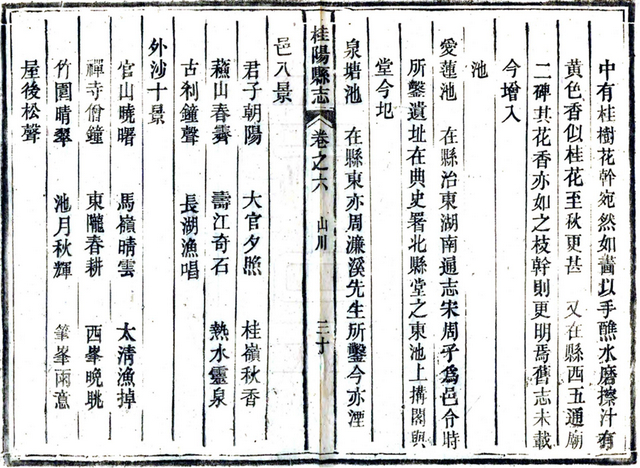 中有桂樹花幹宛然如畫以手醮水磨擦汁有
黃色香似桂花至秋更甚　又在縣西五通廟
二碑其花香亦如之枝幹則更明焉舊志未載
今增入
池
愛蓮池　在縣治東湖南通志宋周子爲邑令時
所鑿遺址在典史署北縣堂之東池上搆閣與
堂今圯
泉塘池　在縣東亦周濂溪先生所鑿今亦湮
桂陽縣志　卷之六　山川　三十
邑八景
君子朝陽　大官夕照　桂嶺秋香
蘓山春霽　壽江奇石　熱水靈泉
古刹鐘聲　長湖漁唱
外沙十景
官山曉曙　馬嶺晴雲　太清漁掉
禪寺僧鐘　東隴春耕　西峯晚眺
竹園晴翠　池月秋輝　筆峯雨意
屋後松聲